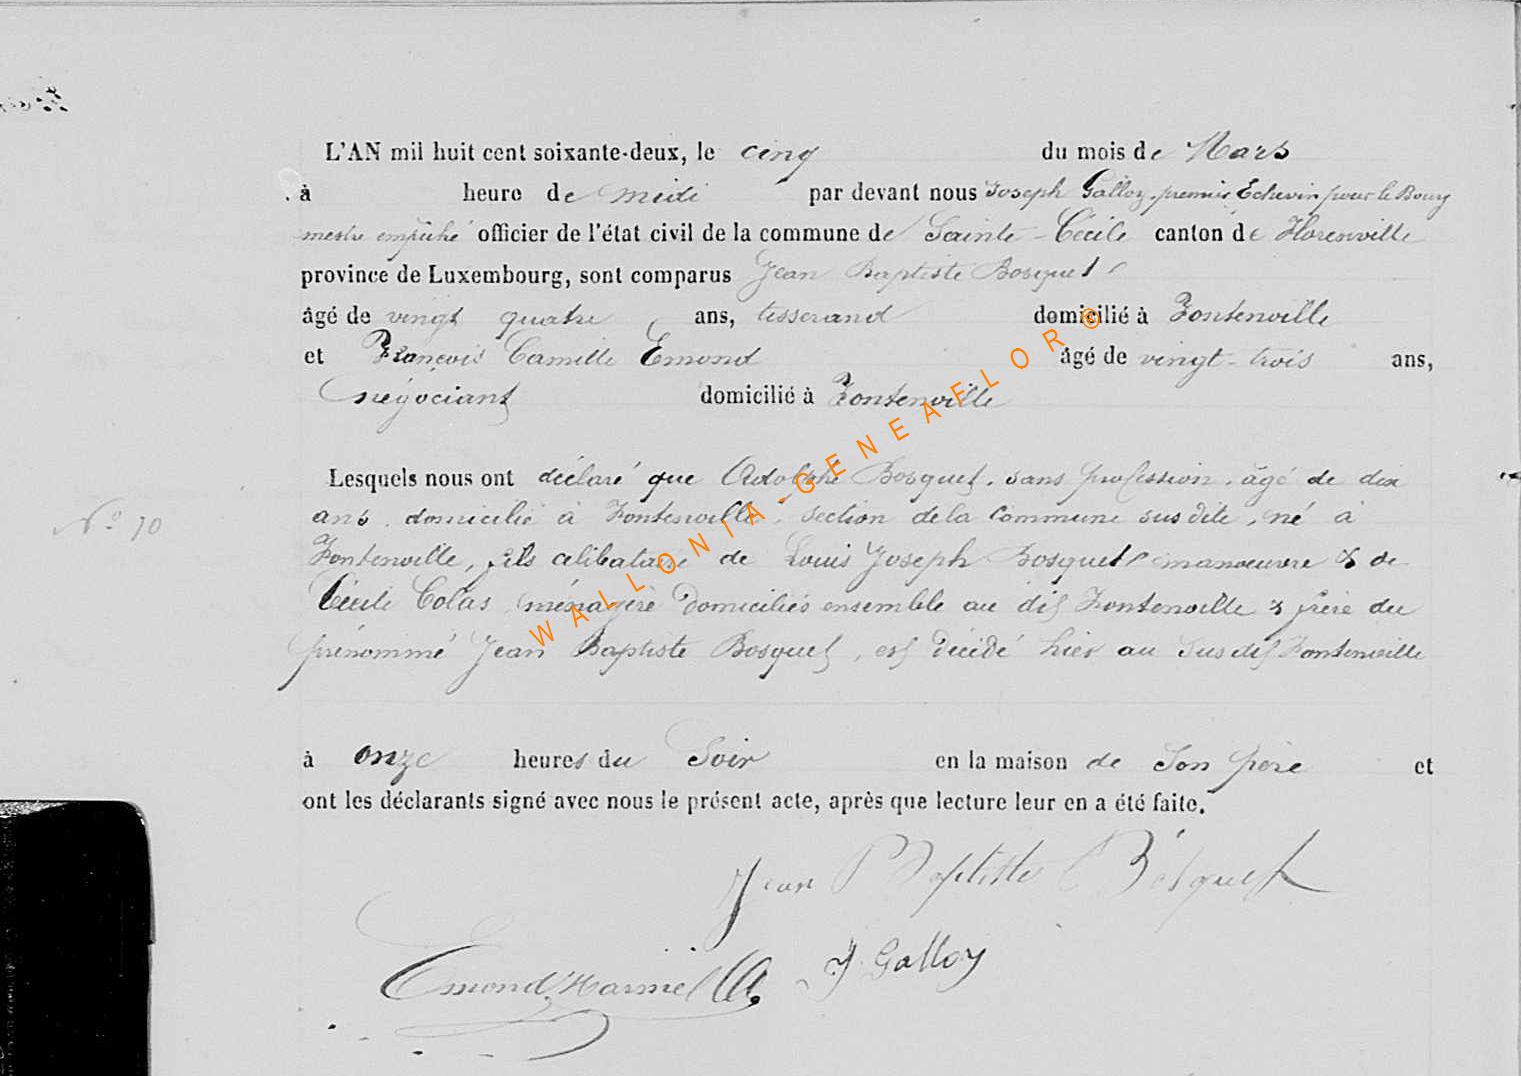 L'AN mil huit cent soixante-deux, le cinq du mois de Mars
à heure de midi par devant nous Joseph Galloy, premier Echevin pour le Bourg
mestre empêché officier de l'état civil de la commune de Sainte-Cécile canton de Florenville
province de Luxembourg, sont comparus Jean Baptiste Bosquet
âgé de vingt quatre ans, tisserand domicilié à Fontenoille
et François Camille Emond âgé de vingt-trois ans,
négociant domicilié à Fontenoille
Lesquels nous ont déclaré que Adolphe Bosquet, sans profession, âgé de dix
N° 10
ans, domicilié à Fontenoille, section de la Commune susdite, né à
Fontenoille, fils célibataire de Louis Joseph Bosquet manoeuvre & de
Cécile Colas, ménagère domiciliés ensemble au dit Fontenoille & frère du
prénommé Jean Baptiste Bosquet, est décédé hier au susdit Fontenoille
à onze heures du soir en la maison de son père et
ont les déclarants signé avec nous le présent acte, après que lecture leur en a été faite.
Jean Baptiste Bosquet
Emond J. Galloy
WALLONIA-GENEAFLOR ©